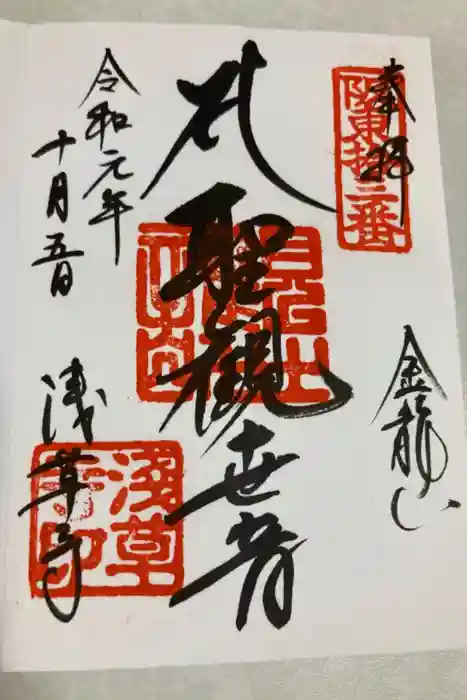 奉拝
坂東拾三番
金龍山
聖観世音
令和元年
十月五日
浅草寺
浅草寺印